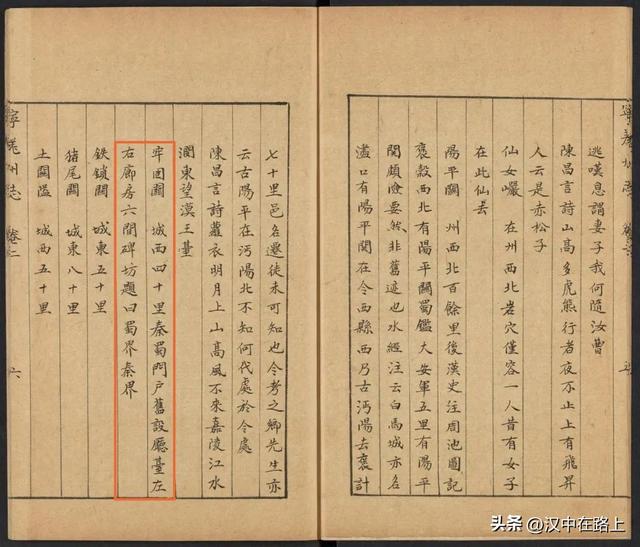 逃嘆息謂妻子我何隨汝曹
陳昌言詩山高多虎熊行者夜不止上有飛昇
人云是赤松子
仙女巖 在州西北岩穴僅容一人昔有女子
在此仙去
陽平關 州西北百餘里後漢史注周池圖記
褒穀西北有陽平關蜀鑑大安軍五里有陽平
関頗險要然非舊迹也水經注云白馬城亦名
濜口有陽平関在今西縣西乃古沔陽去褒計
寧羌州志 卷二
七十里邑名遷徙未可知也今考之鄉先生亦
云古陽平在沔陽北不知何代處於今處
陳昌言詩蘿衣明月上山高風不來嘉陵江水
澗東望漢王臺
牢固關 城西四十里秦蜀門戶舊設廳臺左
右廊房六間碑坊題曰蜀界秦界
鉄鎖關 城東五十里
猪尾関 城東八十里
土關隘 城西五十里
寧羌州志 卷二 六
头条 @汉中在路上